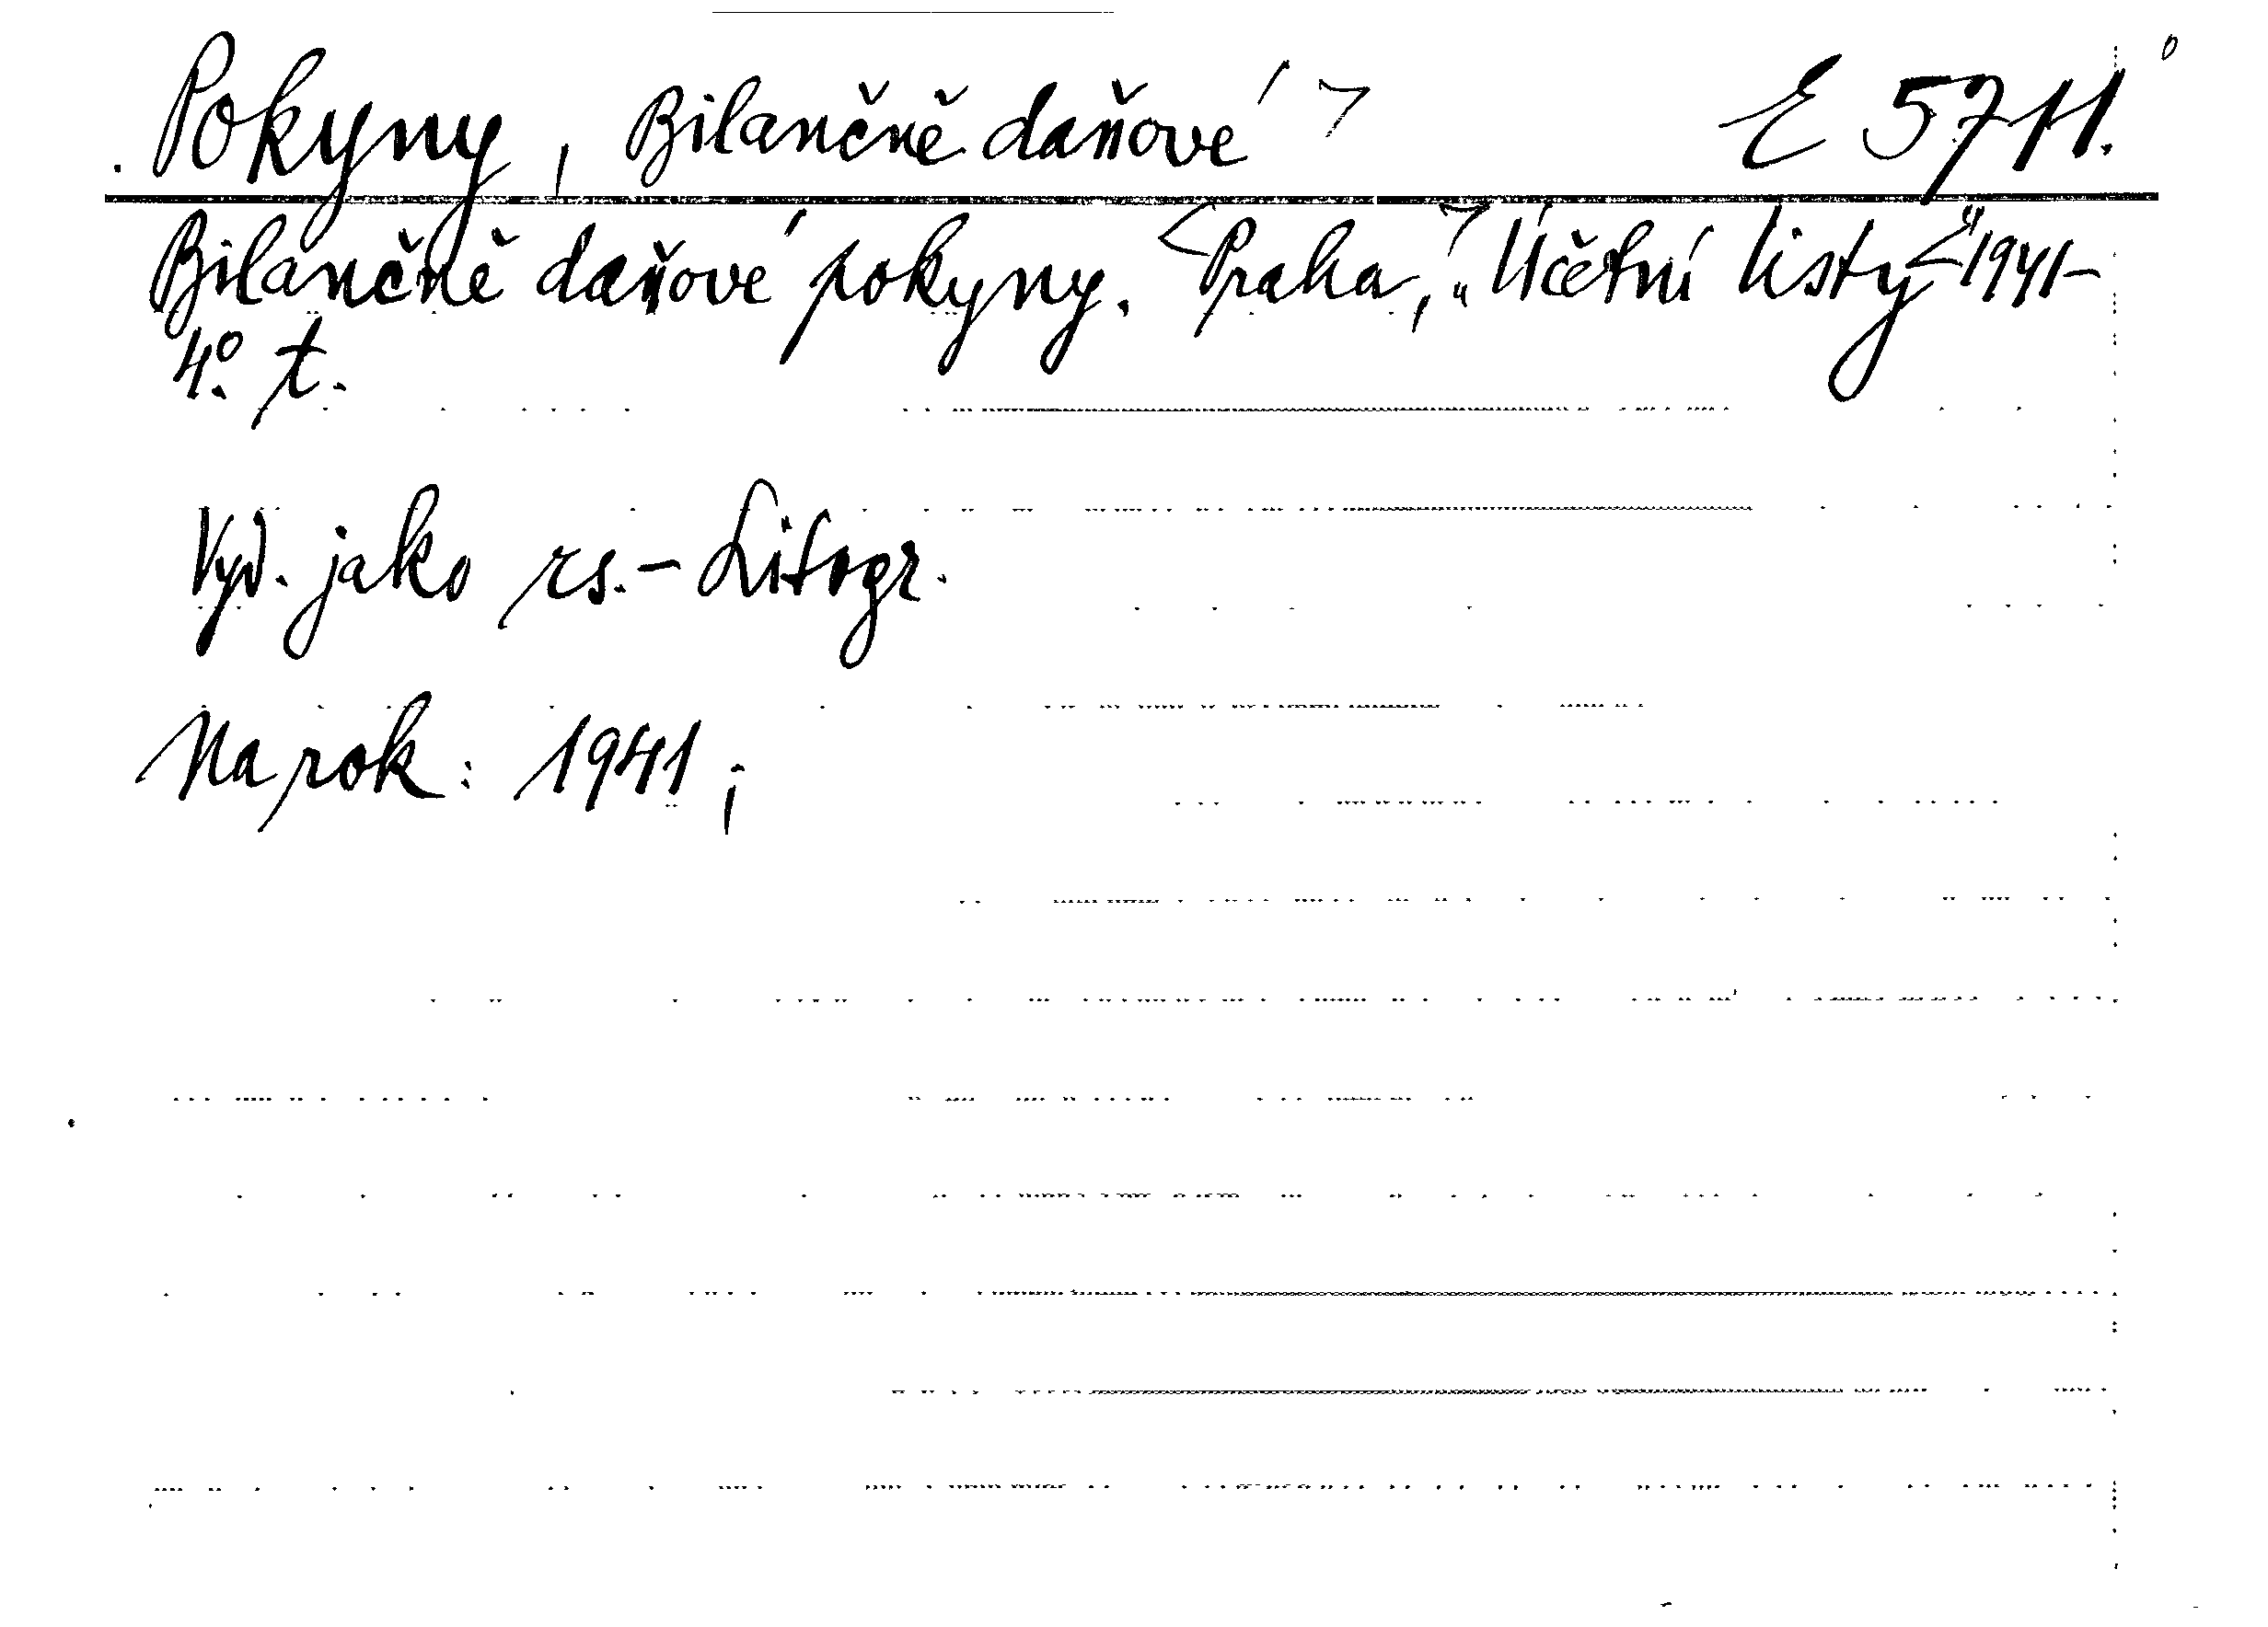 Pokyny, Bilančně daňové E 5711.
Bilančně daňové pokyny. Praha, „Účetní listy“ 1941–
4°. t.
Vyd. jako rs. – Litogr.
Na rok: 1941;